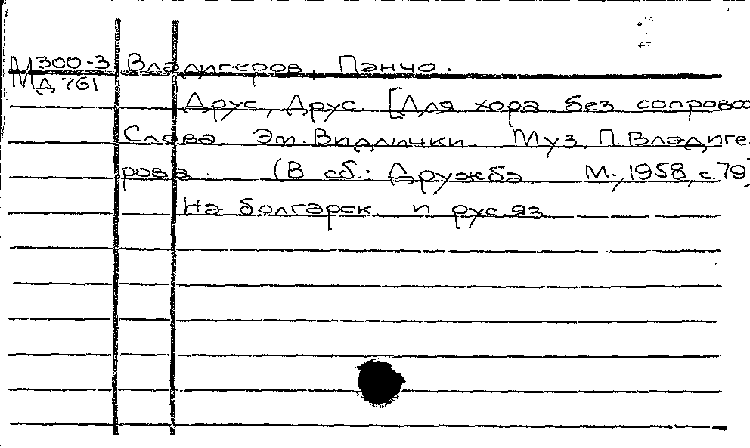 М 300-3 Владигеров, Панчо.
Д 761
Друс, Друс [Для хора без сопрово
Слова Эм. Видлички. Муз. П. Владиге-
рова. (В сб.: Дружба М., 1958, с. 79
На болгарск. и рус. яз.